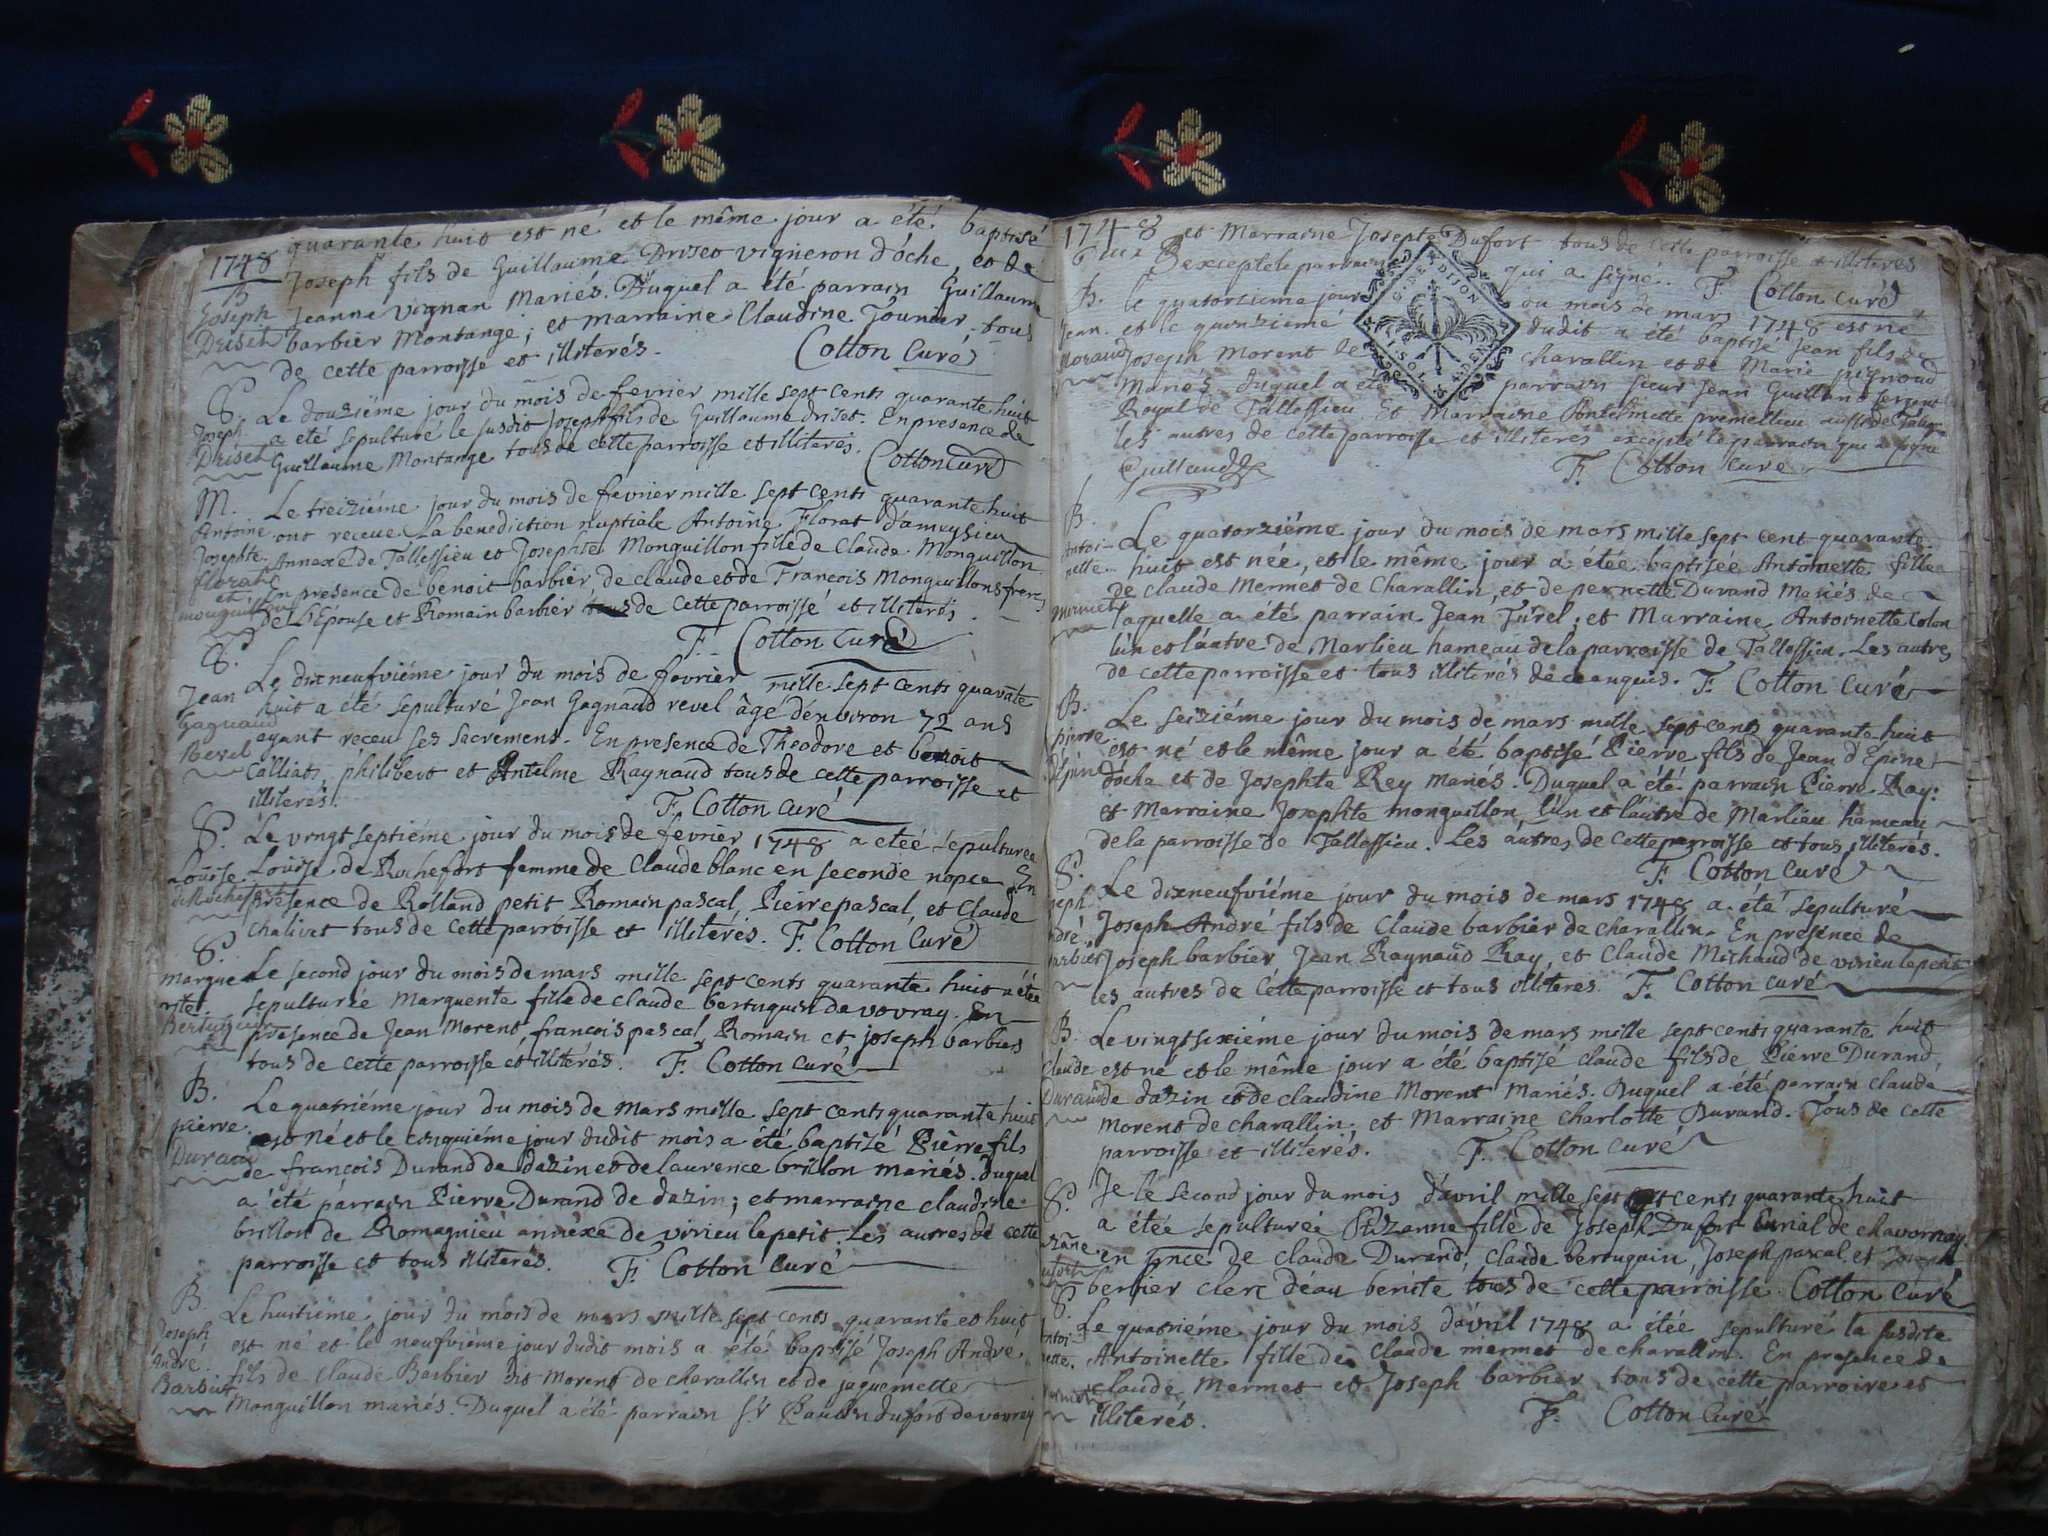 1748
quarante huit est né et le même jour a été baptisé
Joseph fils de Guillaume Driset vigneron d'óche, et de
Jeanne vignan Mariés. Duquel a été parrain Guillaume
barbier Montange; et marraine Claudine Tounier tous
de cette parroisse et illiterés. Cotton Curé
B
Joseph
Driset
Le douziéme jour du mois de fevrier mille sept cents quarante huit
a été sepulturé le susdit Joseph fils de Guillaume driset. En presence de
Guillaume Montange tous de cette parroisse et illiterés. Cotton Curé
S.
Joseph
Driset
Le treiziéme jour du mois de fevrier mille sept cents quarante huit
ont receue La benediction nuptiale Antoine Florat d'ameysieu
Annexe de Tallessieu et Josephte Monguillon fille de Claude Monguillon
En presence de benoit barbier de claude et de François Monguillons freres
de l'Épouse et Romain barbier tous de cette parroisse et illiterés.
F. Cotton Curé
M.
Antoine
Josephte
florat
et
monguillon
Le dixneufviéme jour du mois de fevrier mille sept cents quarate
huit a été sepulturé Jean Gagnaud revel âgé d'environ 72 ans
eyant receu ses sacremens. En presence de Theodore et benoit
Calliat, philibert et Antelme Raynaud tous de cette parroisse et
illiterés. F. Cotton Curé
S.
Jean
Gagnaud
Revel
Le vingt septiéme jour du mois de fevrier 1748 a eteé sépulturée
Louise de Rochefort femme de Claude blanc en seconde nopce. En
presence de Rolland petit Romain pascal, Pierre pascal, et Claude
chalivet tous de cette parroisse et illiterés. F. Cotton Curé
S.
Louise
de Rochefort
Le second jour du mois de mars mille sept cents quarante huit a étée
sepulturée Marguerite fille de claude bertuguin de vovray. En
presence de Jean Morent, françois pascal, Romain et joseph barbier
tous de cette parroisse et illiterés. F. Cotton Curé
S.
margue
rite
Bertuguin
Le quatriéme jour du mois de Mars mille sept cents quarante huit
est né et le cinquiéme jour dudit mois a été baptisé Pierre fils
de françois Durand de dazin et de laurence brillon mariés. duquel
a été parrain Pierre Durand de dazin; et marraine claudine
brillon de Romagnieu annéxe de virieu le petit. Les autres de cette
parroisse et tous illiterés. F. Cotton Curé
B.
pierre
Durand
Le huitiéme jour du mois de mars mille sept cents quarante et huit
est né et le neufviéme jour dudit mois a été baptisé Joseph André
fils de Claude Barbier dit Morent de charallin et de jaquemette
Monguillon mariés. Duquel a été parrain Sr Paulin dufort de vovray
B.
Joseph
André
Barbier
1748 et Marraine Josepte Dufort tous de cette parroisse et illiterés
excepté le parrain qui a signé. F. Cotton Curé
G. DE DIJON
Le quatorziéme jour du mois de mars 1748 est né
et le quinziéme dudit a été baptisé Jean fils de
Joseph Morent de charallin et de Marie pignoud
Mariés. duquel a été parrain sieur Jean Guilland sergent
Royal de Tallessieu Et Marraine
les autres de cette parroisse et illiterés excepté le parrain qui a signé
Guilland F. Cotton Curé
B.
Jean
Morand
Le quatorziéme jour du mois de mars mille sept cent quarante
huit est née, et le même jour a étée baptisée Antoinette fille
de claude Mermet de Charallin, et de pernette Durand Mariés de
laquelle a été parrain Jean Türel; et Marraine Antoinette Colon
l'un et l'autre de Marlieu hameau de la parroisse de Tallessieu. Les autres
de cette parroisse et tous illiterés de ce enquis. F. Cotton Curé
B.
Antoi-
nette
mermet
Le seiziéme jour du mois de mars mille sept cents quarante huit
est né et le même jour a été baptisé Pierre fils de Jean d'Epine
d'óche et de Josephte Rey mariés. Duquel a été parrain Pierre Ray:
et Marraine Josephte monguillon, l'un et l'autre de Marlieu hameau
de la parroisse de Tallessieu. Les autres de cette parroisse et tous illiterés.
F. Cotton Curé
B.
pierre
d'épine
Le dixneufviéme jour du mois de mars 1748 a été sepulturé
Joseph-André fils de Claude barbier de charallin. En présence de
Joseph barbier Jean Raynaud Ray, et Claude Michaud de virieu le petit
les autres de cette parroisse et tous illiteres. F. Cotton Curé
S.
Le vingtsixiéme jour du mois de mars mille sept cents quarante huit
est né et le même jour a été baptisé claude fils de Pierre Durand
de dazin et de claudine Morent Mariés. Duquel a été parrain claude
Morent de charallin; et Marraine Charlotte Durand. Tous de cette
parroisse et illiterés. F. Cotton Curé
B.
Claude
Durand
Je le second jour du mois d'avril mille sept cents quarante huit
a étée sepulturée Suzanne fille de Joseph Dufort de chavornay.
en pnce de claude Durand, claude bertuguin, Joseph pascal et Joseph
berbier clerc d'eau benite tous de cette parroisse. Cotton Curé
S.
Le quatriéme jour du mois d'avril 1748 a étée sepulturé la susdite
Antoinette fille de claude mermet de charallin. En presence de
claude Mermet et Joseph barbier tous de cette parroire et
illiterés. F. Cotton Curé
S.
Antoi-
nette
mermet